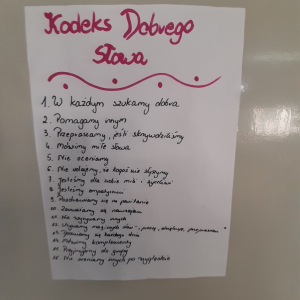 Kodeks Dobrego
Słowa
1. W każdym szukamy dobra
2. Pomagamy innym
3. Przepraszamy, jeśli skrzywdziliśmy
4. Mówimy miłe słowa
5. Nie oceniamy
6. Nie udajemy, że kogoś nie słyszymy
7. Jesteśmy dla siebie mili i życzliwi
8. Jesteśmy empatyczni
9. na powitanie
10.
11. Nie wyzywamy innych
12. Używamy magicznych słów - proszę, dziękuję, przepraszam
13. się każdego dnia
14. Mówimy komplementy
15. Przyjmujemy do grupy
16. Nie oceniamy innych po wyglądzie